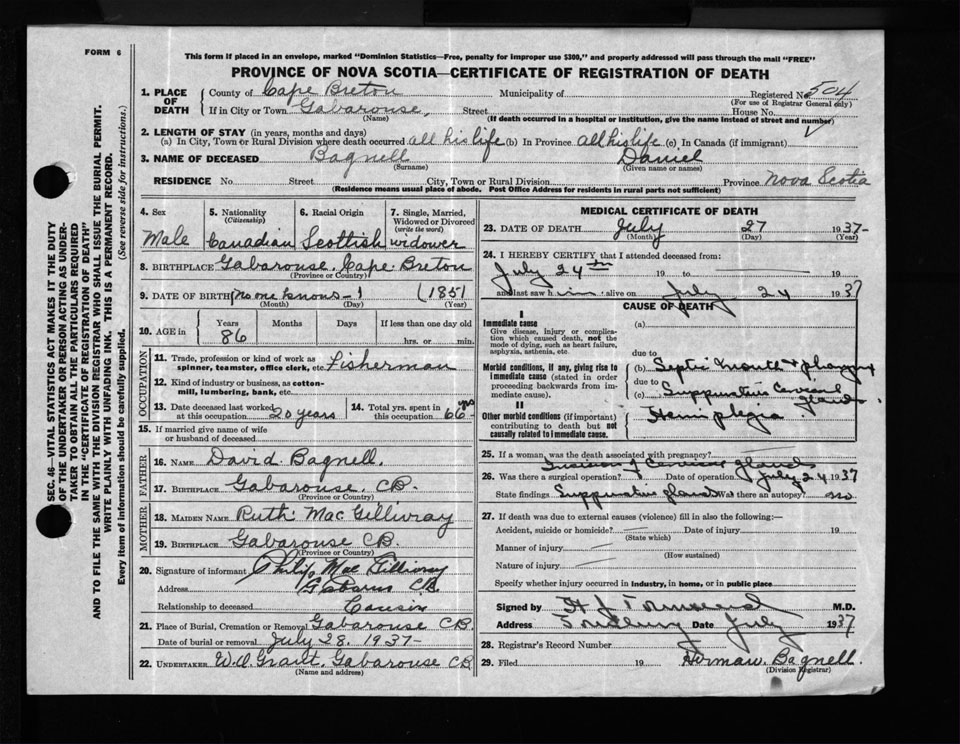 FORM 6
This form if placed in an envelope, marked "Dominion Statistics—Free, penalty for improper use $300," and properly addressed will pass through the mail "FREE"
PROVINCE OF NOVA SCOTIA—CERTIFICATE OF REGISTRATION OF DEATH
1. PLACE OF DEATH
County of Cape Breton Municipality of Registered No. 504
(For use of Registrar General only)
If in City or Town Gabarouse, Street House No.
(Name) (If death occurred in a hospital or institution, give the name instead of street and number)
2. LENGTH OF STAY (in years, months and days)
(a) In City, Town or Rural Division where death occurred all his life (b) In Province all his life (c) In Canada (if immigrant)
3. NAME OF DECEASED Bagnell Daniel
(Surname) (Given name or names)
RESIDENCE No. Street City, Town or Rural Division Province Nova Scotia
(Residence means usual place of abode. Post Office Address for residents in rural parts not sufficient)
4. Sex
Male
5. Nationality
(Citizenship)
Canadian
6. Racial Origin
Scottish
7. Single, Married, Widowed or Divorced
(write the word)
widower
8. BIRTHPLACE Gabarouse, Cape Breton
(Province or Country)
9. DATE OF BIRTH (No one knows—) (1851
(Month) (Day) (Year)
10. AGE in
Years Months Days If less than one day old
86 hrs. or min.
OCCUPATION
11. Trade, profession or kind of work as spinner, teamster, office clerk, etc. Fisherman
12. Kind of industry or business, as cotton-mill, lumbering, bank, etc.
13. Date deceased last worked at this occupation 20 years
14. Total yrs. spent in this occupation 66 yrs
15. If married give name of wife or husband of deceased
FATHER
16. NAME David Bagnell.
17. BIRTHPLACE Gabarouse, C.B.
(Province or Country)
MOTHER
18. MAIDEN NAME Ruth MacGillivray
19. BIRTHPLACE Gabarouse C.B.
(Province or Country)
20. Signature of informant Philip MacGillivray
Address C.B.
Relationship to deceased Cousin
21. Place of Burial, Cremation or Removal Gabarouse C.B.
Date of burial or removal July 28, 1937-
22. UNDERTAKER W.A. Grant, Gabarouse C.B.
(Name and address)
MEDICAL CERTIFICATE OF DEATH
23. DATE OF DEATH July 27 1937-
(Month) (Day) (Year)
24. I HEREBY CERTIFY that I attended deceased from:
July 24th 19 to 19
and last saw him alive on July 24 1937
CAUSE OF DEATH
I
Immediate cause
Give disease, injury or complication which caused death, not the mode of dying, such as heart failure, asphyxia, asthenia, etc.
(a)
due to
Morbid conditions, if any, giving rise to immediate cause (stated in order proceeding backwards from immediate cause).
(b) Septic mouth & pharynx
due to
(c) Suppurative Cervical gland
II
Other morbid conditions (if important) contributing to death but not causally related to immediate cause.
Hemiplegia
25. If a woman, was the death associated with pregnancy?
26. Was there a surgical operation? Incision of Cervical glands Date of operation July 24 1937
State findings Suppurative gland Was there an autopsy? no
27. If death was due to external causes (violence) fill in also the following:—
Accident, suicide or homicide? Date of injury 19
(State which)
Manner of injury
(How sustained)
Nature of injury
Specify whether injury occurred in industry, in home, or in public place
Signed by H J Townsend M.D.
Address Date July 1937
28. Registrar's Record Number
29. Filed 19 Herman Bagnell.
(Division Registrar)
SEC. 46—VITAL STATISTICS ACT MAKES IT THE DUTY
OF THE UNDERTAKER OR PERSON ACTING AS UNDER-
TAKER TO OBTAIN ALL THE PARTICULARS REQUIRED
IN THE "CERTIFICATE OF REGISTRATION OF DEATH"
AND TO FILE THE SAME WITH THE DIVISION REGISTRAR WHO SHALL ISSUE THE BURIAL PERMIT.
WRITE PLAINLY WITH UNFADING INK. THIS IS A PERMANENT RECORD.
Every item of information should be carefully supplied. (See reverse side for instructions.)